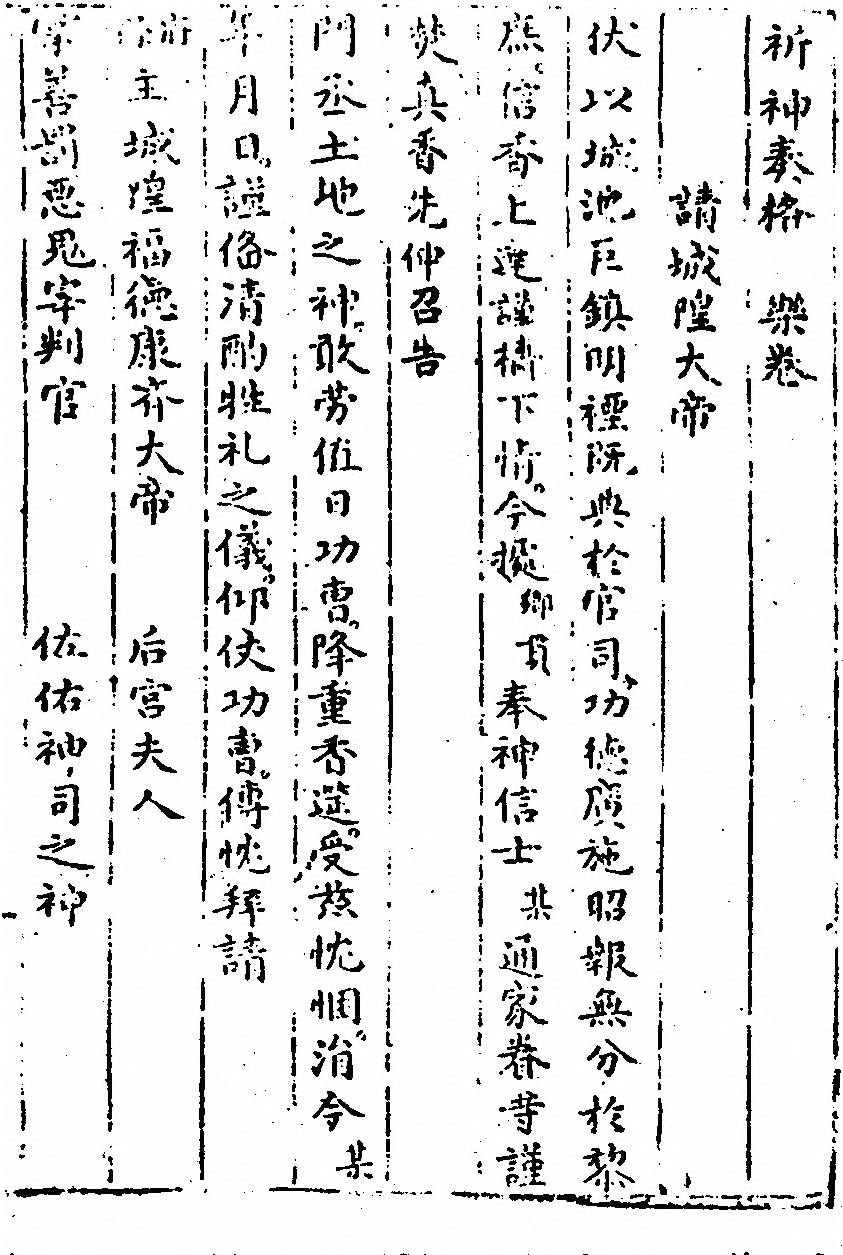 祈神奏格　樂卷
請城隍大帝
伏以城池巨鎮明禋既典於官司功德廣施昭報無分於黎
庶信香上達謹攄下情今據鄉貫奉神信士某通家眷等謹
焚真香先伸召告
門丞土地之神敢勞值日功曹降重香筵受茲忱悃涓今某
年月日謹俻清酌牲礼之儀仰伏功曹傳忱拜請
府主城隍福德康齐大帝　后宫夫人
善罰惡冤宰判官　佐佑神司之神